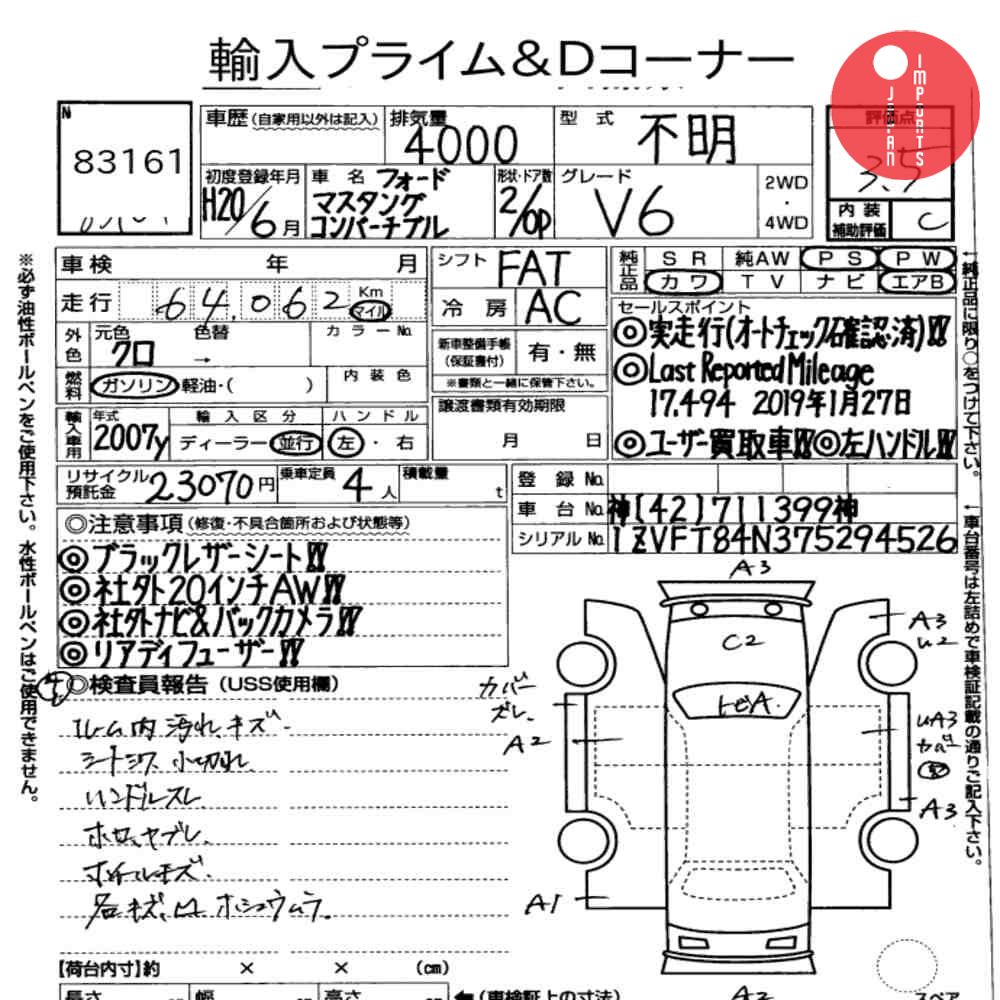 輸入プライム&Dコーナー
JAPAN IMPORTS
N
83161
車歴(自家用以外は記入)
排気量 4000
型式 不明
評価点 3.5
初度登録年月 H20/6月
車名 フォード マスタング コンバーチブル
形状・ドア数 2/OP
グレード V6
2WD・4WD
内装補助評価 C
車検 年 月
シフト FAT
純正品 SR 純AW PS PW
カワ TV ナビ エアB
走行 64,062 Km マイル
冷房 AC
セールスポイント
◎実走行(オートチェック確認済)!!
◎Last Reported Mileage
17.494 2019年1月27日
◎ユーザー買取車!!◎左ハンドル!!
外色 元色 クロ 色替 → カラーNo.
新車整備手帳(保証書付) 有・無
※書類と一緒に保管下さい。
燃料 ガソリン 軽油・( ) 内装色
譲渡書類有効期限
月 日
輸入車用 年式 2007y 輸入区分 ディーラー 並行 ハンドル 左・右
リサイクル預託金 23070円
乗車定員 4人
積載量 t
登録No.
車台No. 神[42]711399神
シリアルNo. 1ZVFT84N375294526
◎注意事項(修復・不具合箇所および状態等)
◎ブラックレザーシート!!
◎社外20インチAW!!
◎社外ナビ&バックカメラ!!
◎リアディフューザー!!
◎検査員報告(USS使用欄)
ルーム内汚れ キズ.
シートシワ 小切れ
ハンドルスレ
ホロ ヤブレ.
各キズ、凹 ホシュウムラ.
A3
C2
トビA.
カバーズレ.
A2
A1
A3
U2
UA3
カバー
A3
A2
【荷台内寸】約 × × (cm)
長さ 幅 高さ
(車検証上の寸法)
スペア
※必ず油性ボールペンをご使用下さい。水性ボールペンはご使用できません。
←純正品に限り○をつけて下さい。
←車台番号は左詰めで車検証記載の通りご記入下さい。